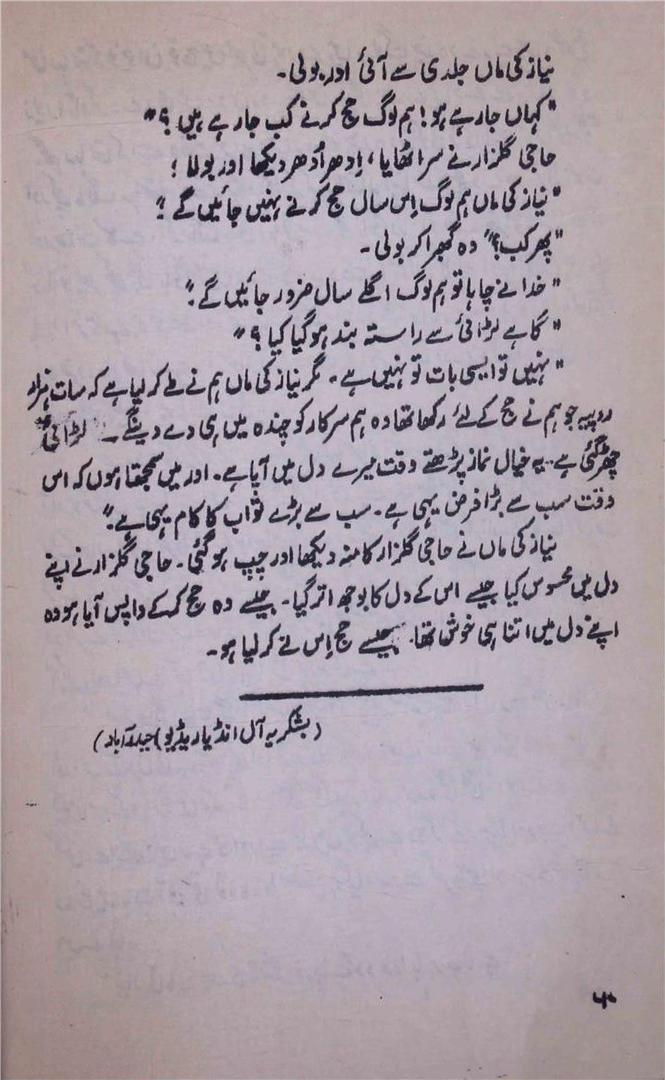 نیاز کی ماں جلدی سے آئی اور بولی۔
"کہاں جارہے ہو! ہم لوگ حج کرنے کب جارہے ہیں ؟"
حاجی گلزار نے سر اٹھایا، اِدھر اُدھر دیکھا اور بولا ؛
"نیاز کی ماں ہم لوگ اِس سال حج کرنے نہیں جائیں گے"؛
"پھر کب؟" وہ گھبرا کر بولی۔
"خدا نے چاہا تو ہم لوگ اگلے سال ضرور جائیں گے"؛
"کاہے لڑائی سے راستہ بند ہوگیا کیا ؟"
"نہیں تو ایسی بات تو نہیں ہے۔ مگر نیاز کی ماں ہم نے طے کرلیا ہے کہ سات ہزار
روپیہ جو ہم نے حج کے لئے رکھا تھا وہ ہم سرکار کو چندہ میں ہی دے دینگے۔ لڑائی
چھڑ گئی ہے۔ یہ خیال نماز پڑھتے وقت میرے دل میں آیا ہے۔ اور میں سمجھتا ہوں کہ اس
وقت سب سے بڑا فرض یہی ہے۔ سب سے بڑے ثواب کا کام یہی ہے"؛
نیاز کی ماں نے حاجی گلزار کا منہ دیکھا اور چپ ہوگئی۔ حاجی گلزار نے اپنے
دل میں محسوس کیا جیسے اس کے دل کا بوجھ اتر گیا۔ جیسے وہ حج کرکے واپس آیا ہو وہ
اپنے دل میں اتنا ہی خوش تھا۔ جیسے حج اِس نے کرلیا ہو۔
(بشکریہ آل انڈیا ریڈیو) حیدرآباد)